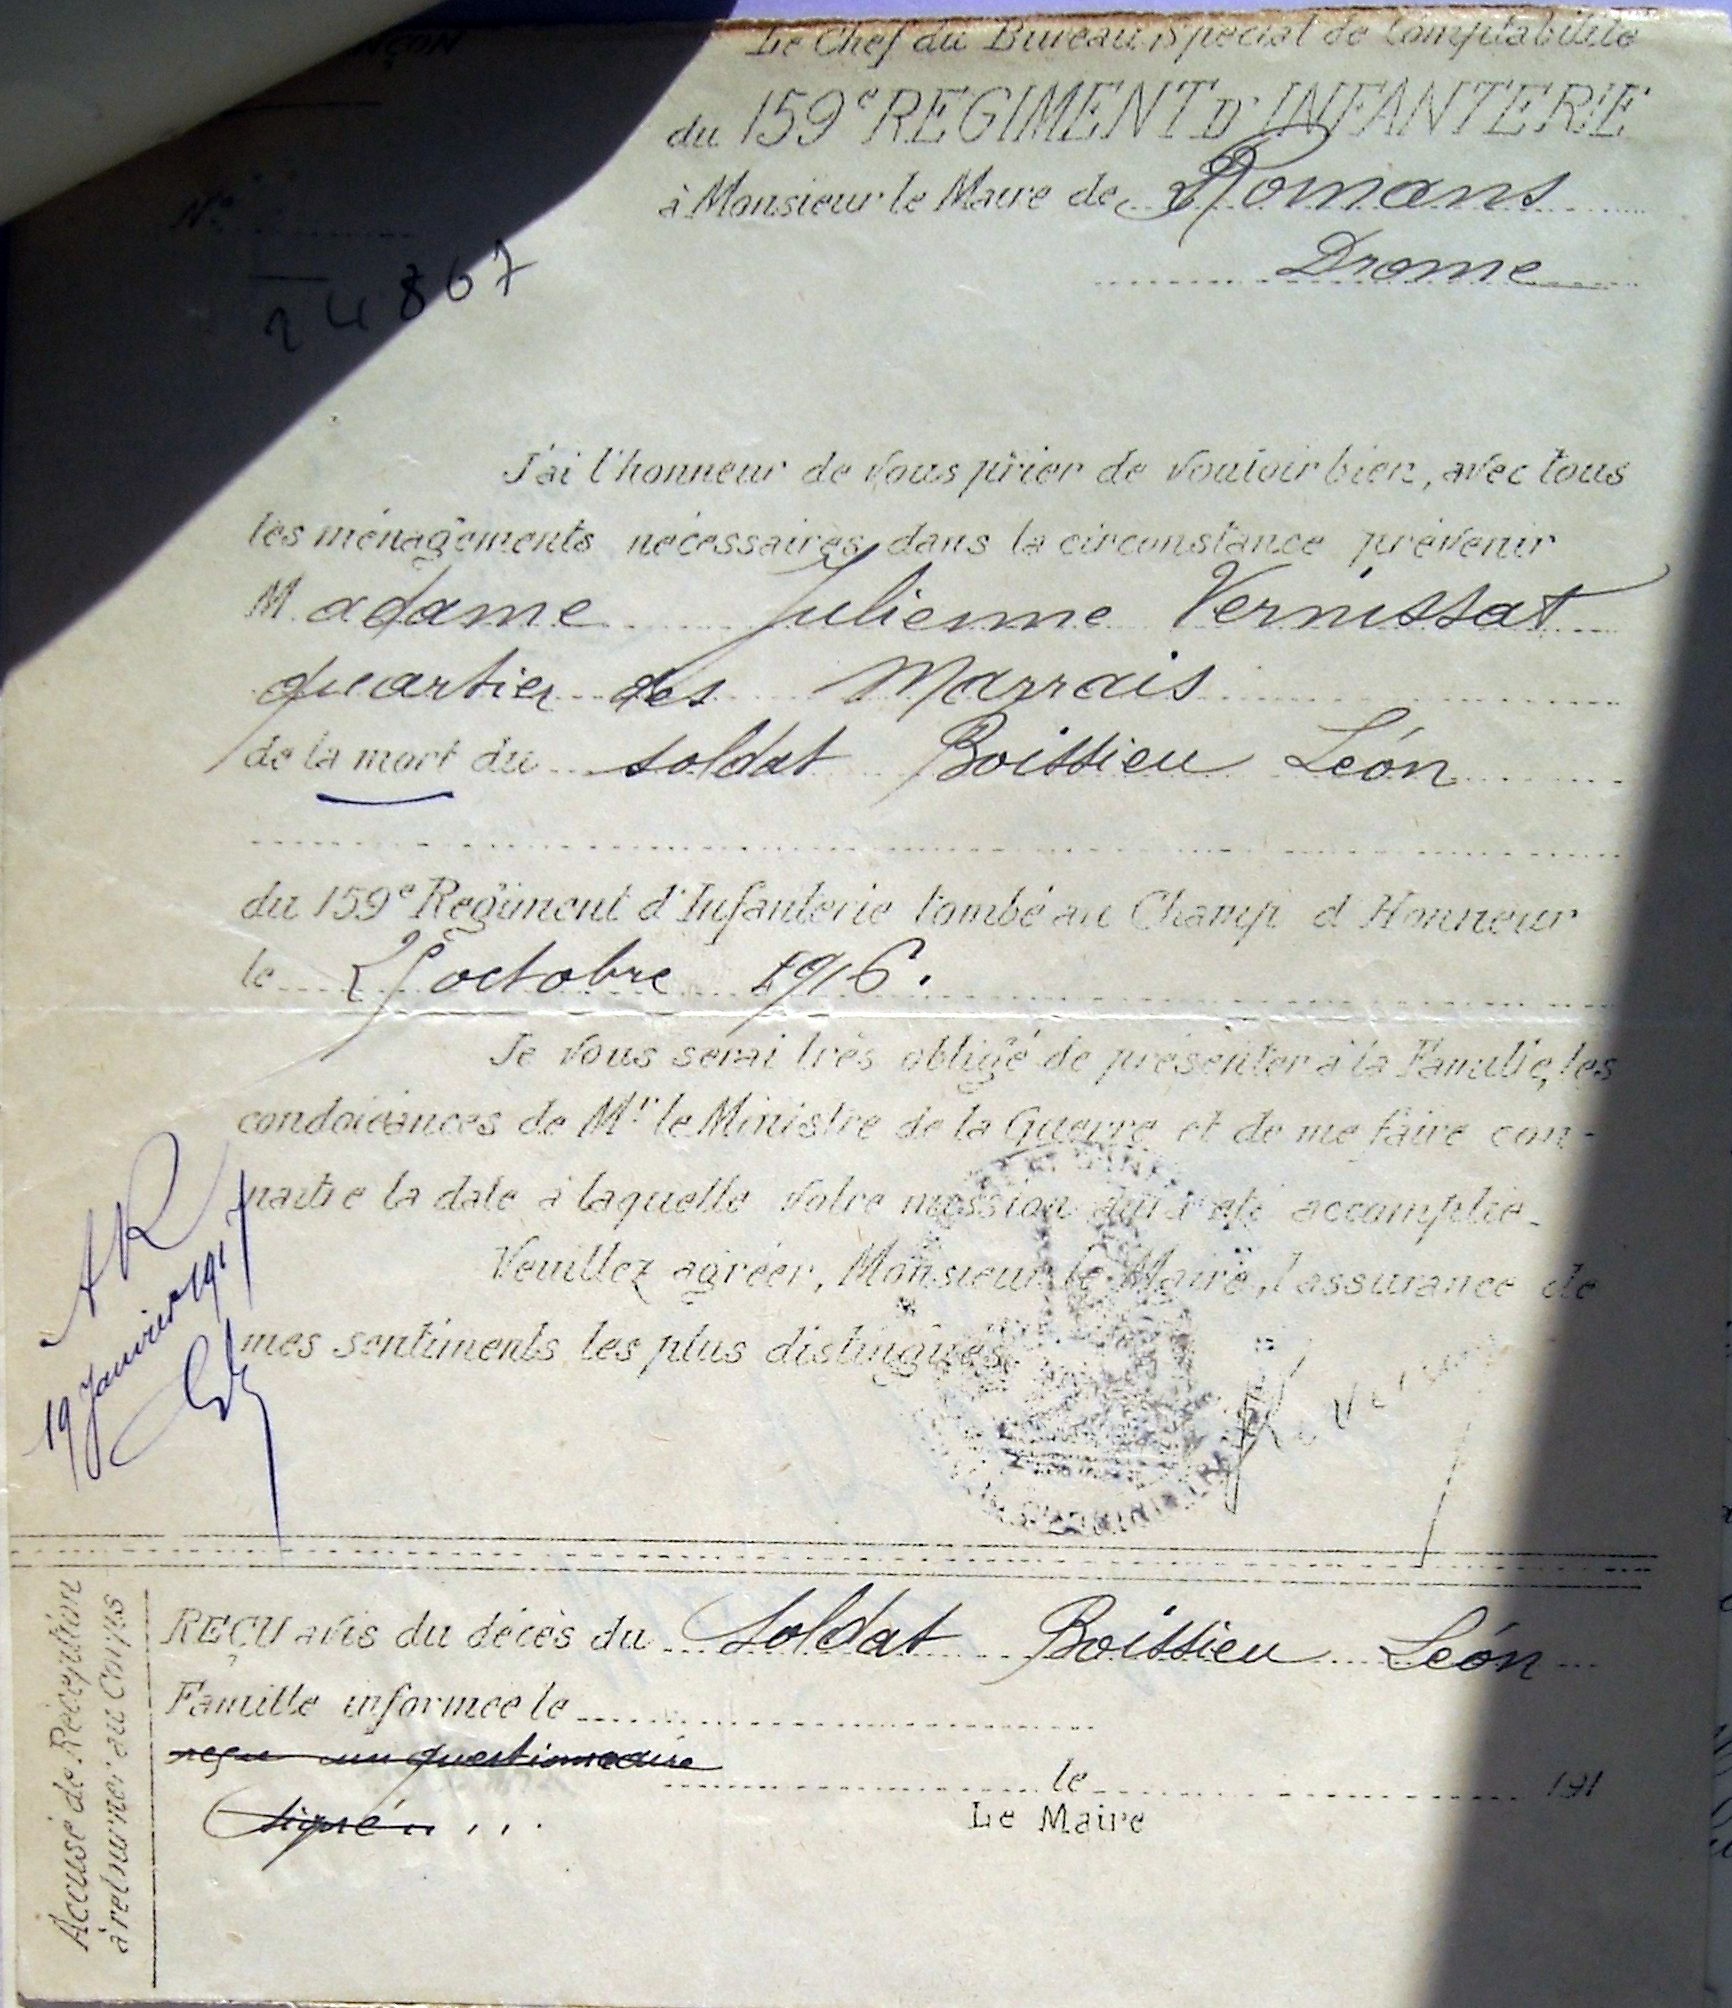 Le Chef du Bureau Spécial de Comptabilité
du 159e REGIMENT D'INFANTERIE
à Monsieur le Maire de Romans
Drome
No
24867
J'ai l'honneur de vous prier de vouloir bien, avec tous
les ménagements nécessaires dans la circonstance prévenir
Madame Julienne Vernissat
quartier des Marrais
de la mort du soldat Boissieu Léon
du 159e Régiment d'Infanterie tombé au Champ d'Honneur
le octobre 1916.
Je vous serai très obligé de présenter à la Famille, les
condoléances de Mr le Ministre de la Guerre et de me faire con-
naitre la date à laquelle votre mission aura été accomplie.
Veuillez agréer, Monsieur le Maire, l'assurance de
mes sentiments les plus distingués.
AR
19 Janvier 1917
Accusé de Réception
à retourner au Corps
REÇU avis du décès du Soldat Boissieu Léon
Famille informée le
reçu un questionnaire
le 191
Signé
Le Maire